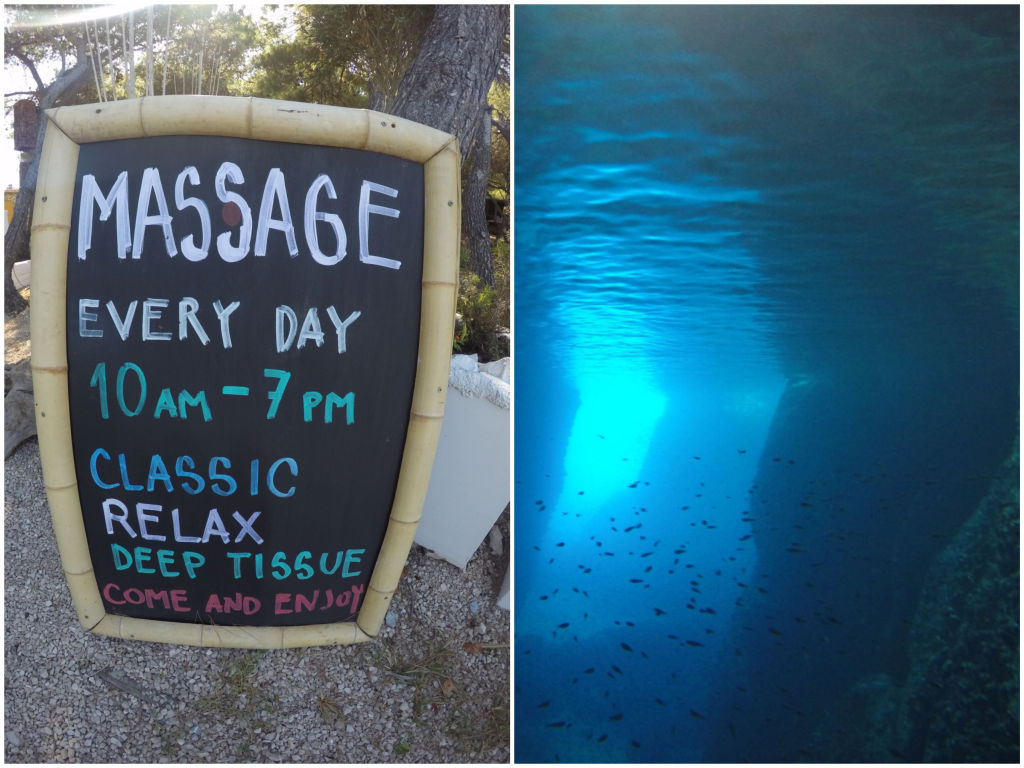 MASSAGE
EVERY DAY
10 AM - 7 PM
CLASSIC
RELAX
DEEP TISSUE
COME AND ENJOY